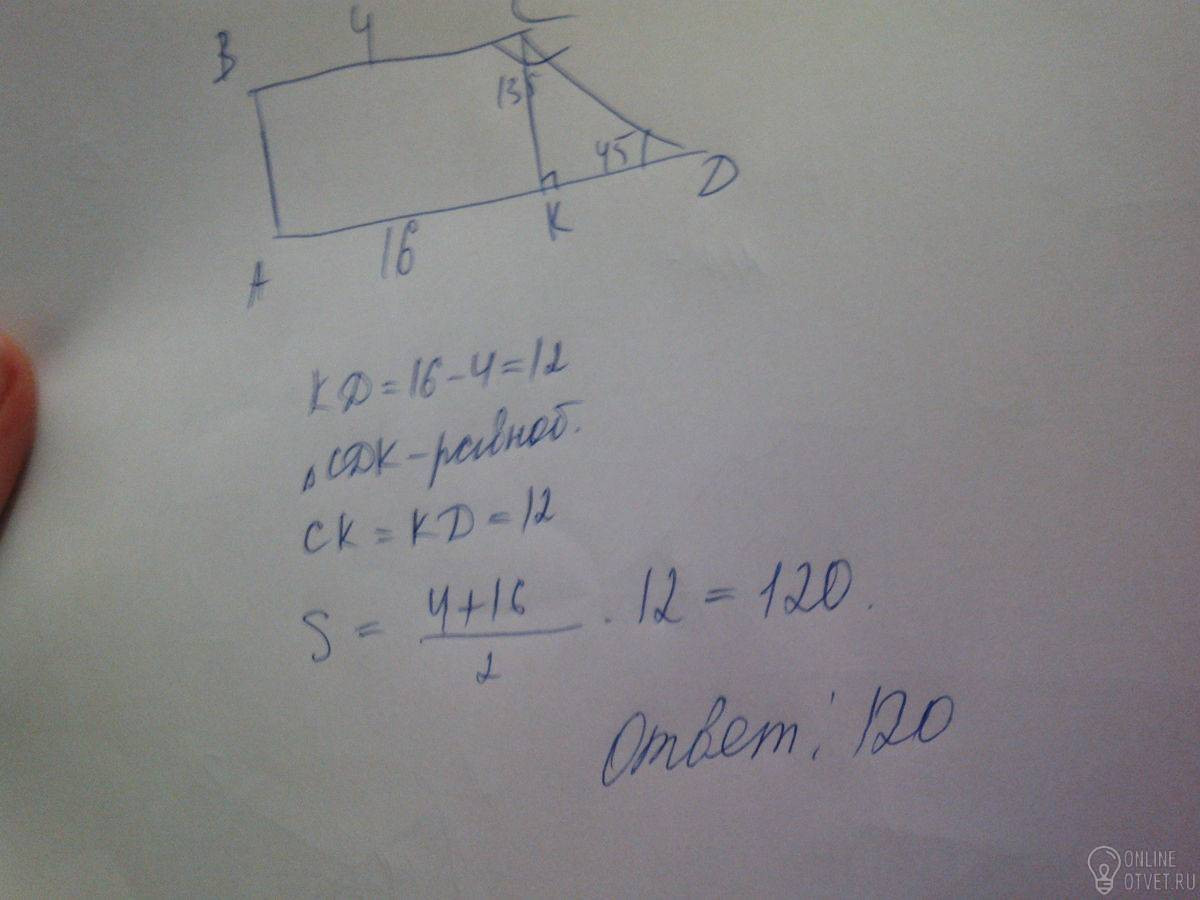 4
C
B
135
45
D
K
16
A
KD = 16 - 4 = 12
△CDK - равноб.
CK = KD = 12
S = 4+16 / 2 · 12 = 120.
Ответ: 120
ONLINE
OTVET.RU